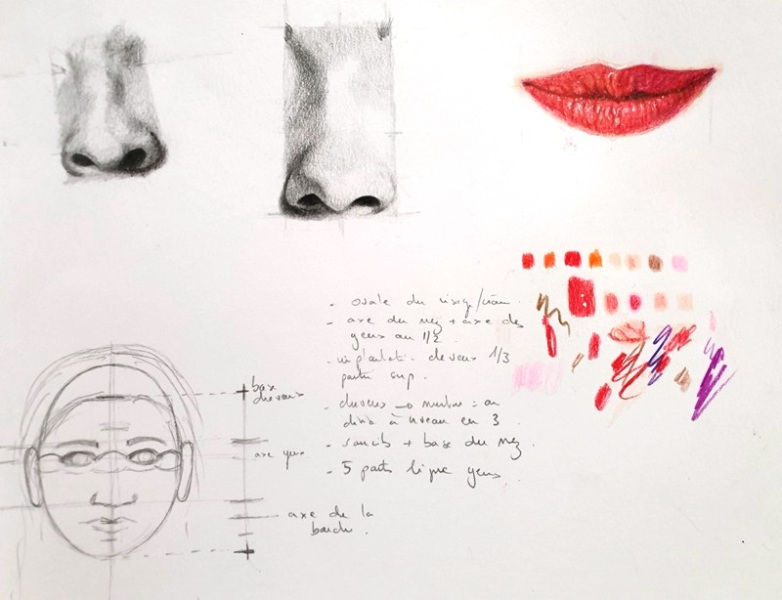 - ovale du visage/crâne.
- axe du nez + axe des
yeux au 1/2
- implantat. cheveux 1/3
partie sup.
- cheveux → menton : on
divise à niveau en 3
- sourcils + base du nez.
- 5 parts ligne yeux
base
cheveux
axe yeux
axe de la
bouche.